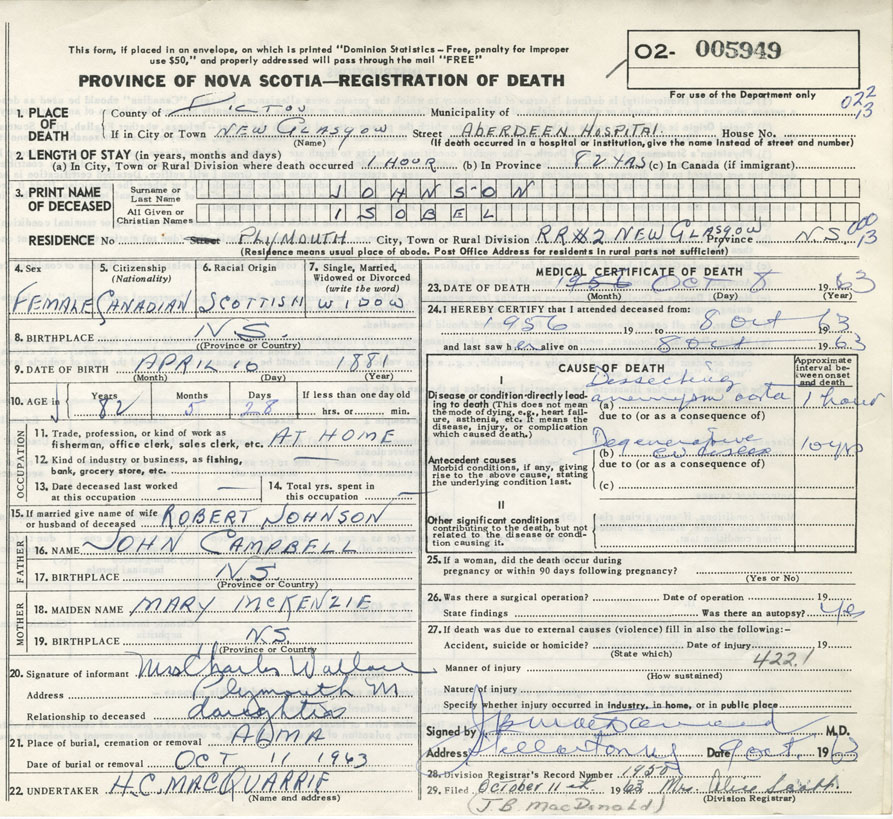 This form, if placed in an envelope, on which is printed "Dominion Statistics – Free, penalty for improper
use $50," and properly addressed will pass through the mail "FREE"
O2- 005949
For use of the Department only
PROVINCE OF NOVA SCOTIA—REGISTRATION OF DEATH
022
13
1. PLACE OF DEATH
County of PICTOU Municipality of
If in City or Town NEW GLASGOW Street ABERDEEN HOSPITAL House No.
(Name) (If death occurred in a hospital or institution, give the name instead of street and number)
2. LENGTH OF STAY (in years, months and days)
(a) In City, Town or Rural Division where death occurred 1 HOUR (b) In Province 82 YRS (c) In Canada (if immigrant)
3. PRINT NAME OF DECEASED
Surname or Last Name JOHNSON
All Given or Christian Names ISOBEL
RESIDENCE No Street PLYMOUTH City, Town or Rural Division RR#2 NEW GLASGOW Province NS
000
13
(Residence means usual place of abode. Post Office Address for residents in rural parts not sufficient)
4. Sex
FEMALE
5. Citizenship
(Nationality)
CANADIAN
6. Racial Origin
SCOTTISH
7. Single, Married,
Widowed or Divorced
(write the word)
WIDOW
8. BIRTHPLACE N.S.
(Province or Country)
9. DATE OF BIRTH APRIL 10 1881
(Month) (Day) (Year)
10. AGE in
Years Months Days If less than one day old
82 5 28 hrs. or min.
OCCUPATION
11. Trade, profession, or kind of work as
fisherman, office clerk, sales clerk, etc. AT HOME
12. Kind of industry or business, as fishing,
bank, grocery store, etc. —
13. Date deceased last worked
at this occupation —
14. Total yrs. spent in
this occupation —
15. If married give name of wife
or husband of deceased ROBERT JOHNSON
FATHER
16. NAME JOHN CAMPBELL
17. BIRTHPLACE N.S.
(Province or Country)
MOTHER
18. MAIDEN NAME MARY McKENZIE
19. BIRTHPLACE N.S.
(Province or Country)
20. Signature of informant Mrs Charles Wallace
Address Plymouth
Relationship to deceased daughter
21. Place of burial, cremation or removal ALMA
Date of burial or removal OCT 11 1963
22. UNDERTAKER H.C. MACQUARRIE
(Name and address)
MEDICAL CERTIFICATE OF DEATH
23. DATE OF DEATH 1956 OCT 8 1963
(Month) (Day) (Year)
24. I HEREBY CERTIFY that I attended deceased from:
1956 19 to 8 Oct 1963
and last saw her alive on 8 Oct 1963
CAUSE OF DEATH
Approximate
interval be-
tween onset
and death
I
Disease or condition-directly lead-
ing to death (This does not mean
the mode of dying, e.g., heart fail-
ure, asthenia, etc. It means the
disease, injury, or complication
which caused death.)
Dissecting
(a) aneurysm aorta 1 hour
due to (or as a consequence of)
Antecedent causes
Morbid conditions, if any, giving
rise to the above cause, stating
the underlying condition last.
Degenerative
(b) CV disease 10 yrs
due to (or as a consequence of)
(c)
II
Other significant conditions
contributing to the death, but not
related to the disease or condi-
tion causing it.
25. If a woman, did the death occur during
pregnancy or within 90 days following pregnancy?
(Yes or No)
26. Was there a surgical operation? Date of operation 19
State findings Was there an autopsy? Yes
27. If death was due to external causes (violence) fill in also the following:–
Accident, suicide or homicide? Date of injury 19
(State which) 422.1
Manner of injury
(How sustained)
Nature of injury
Specify whether injury occurred in industry, in home, or in public place
Signed by M.D.
Address Stellarton NS Date 9 Oct 1963
28. Division Registrar's Record Number 1950
29. Filed October 11th 1963 Mrs. Alice
(Division Registrar)
(J.B. MacDonald)